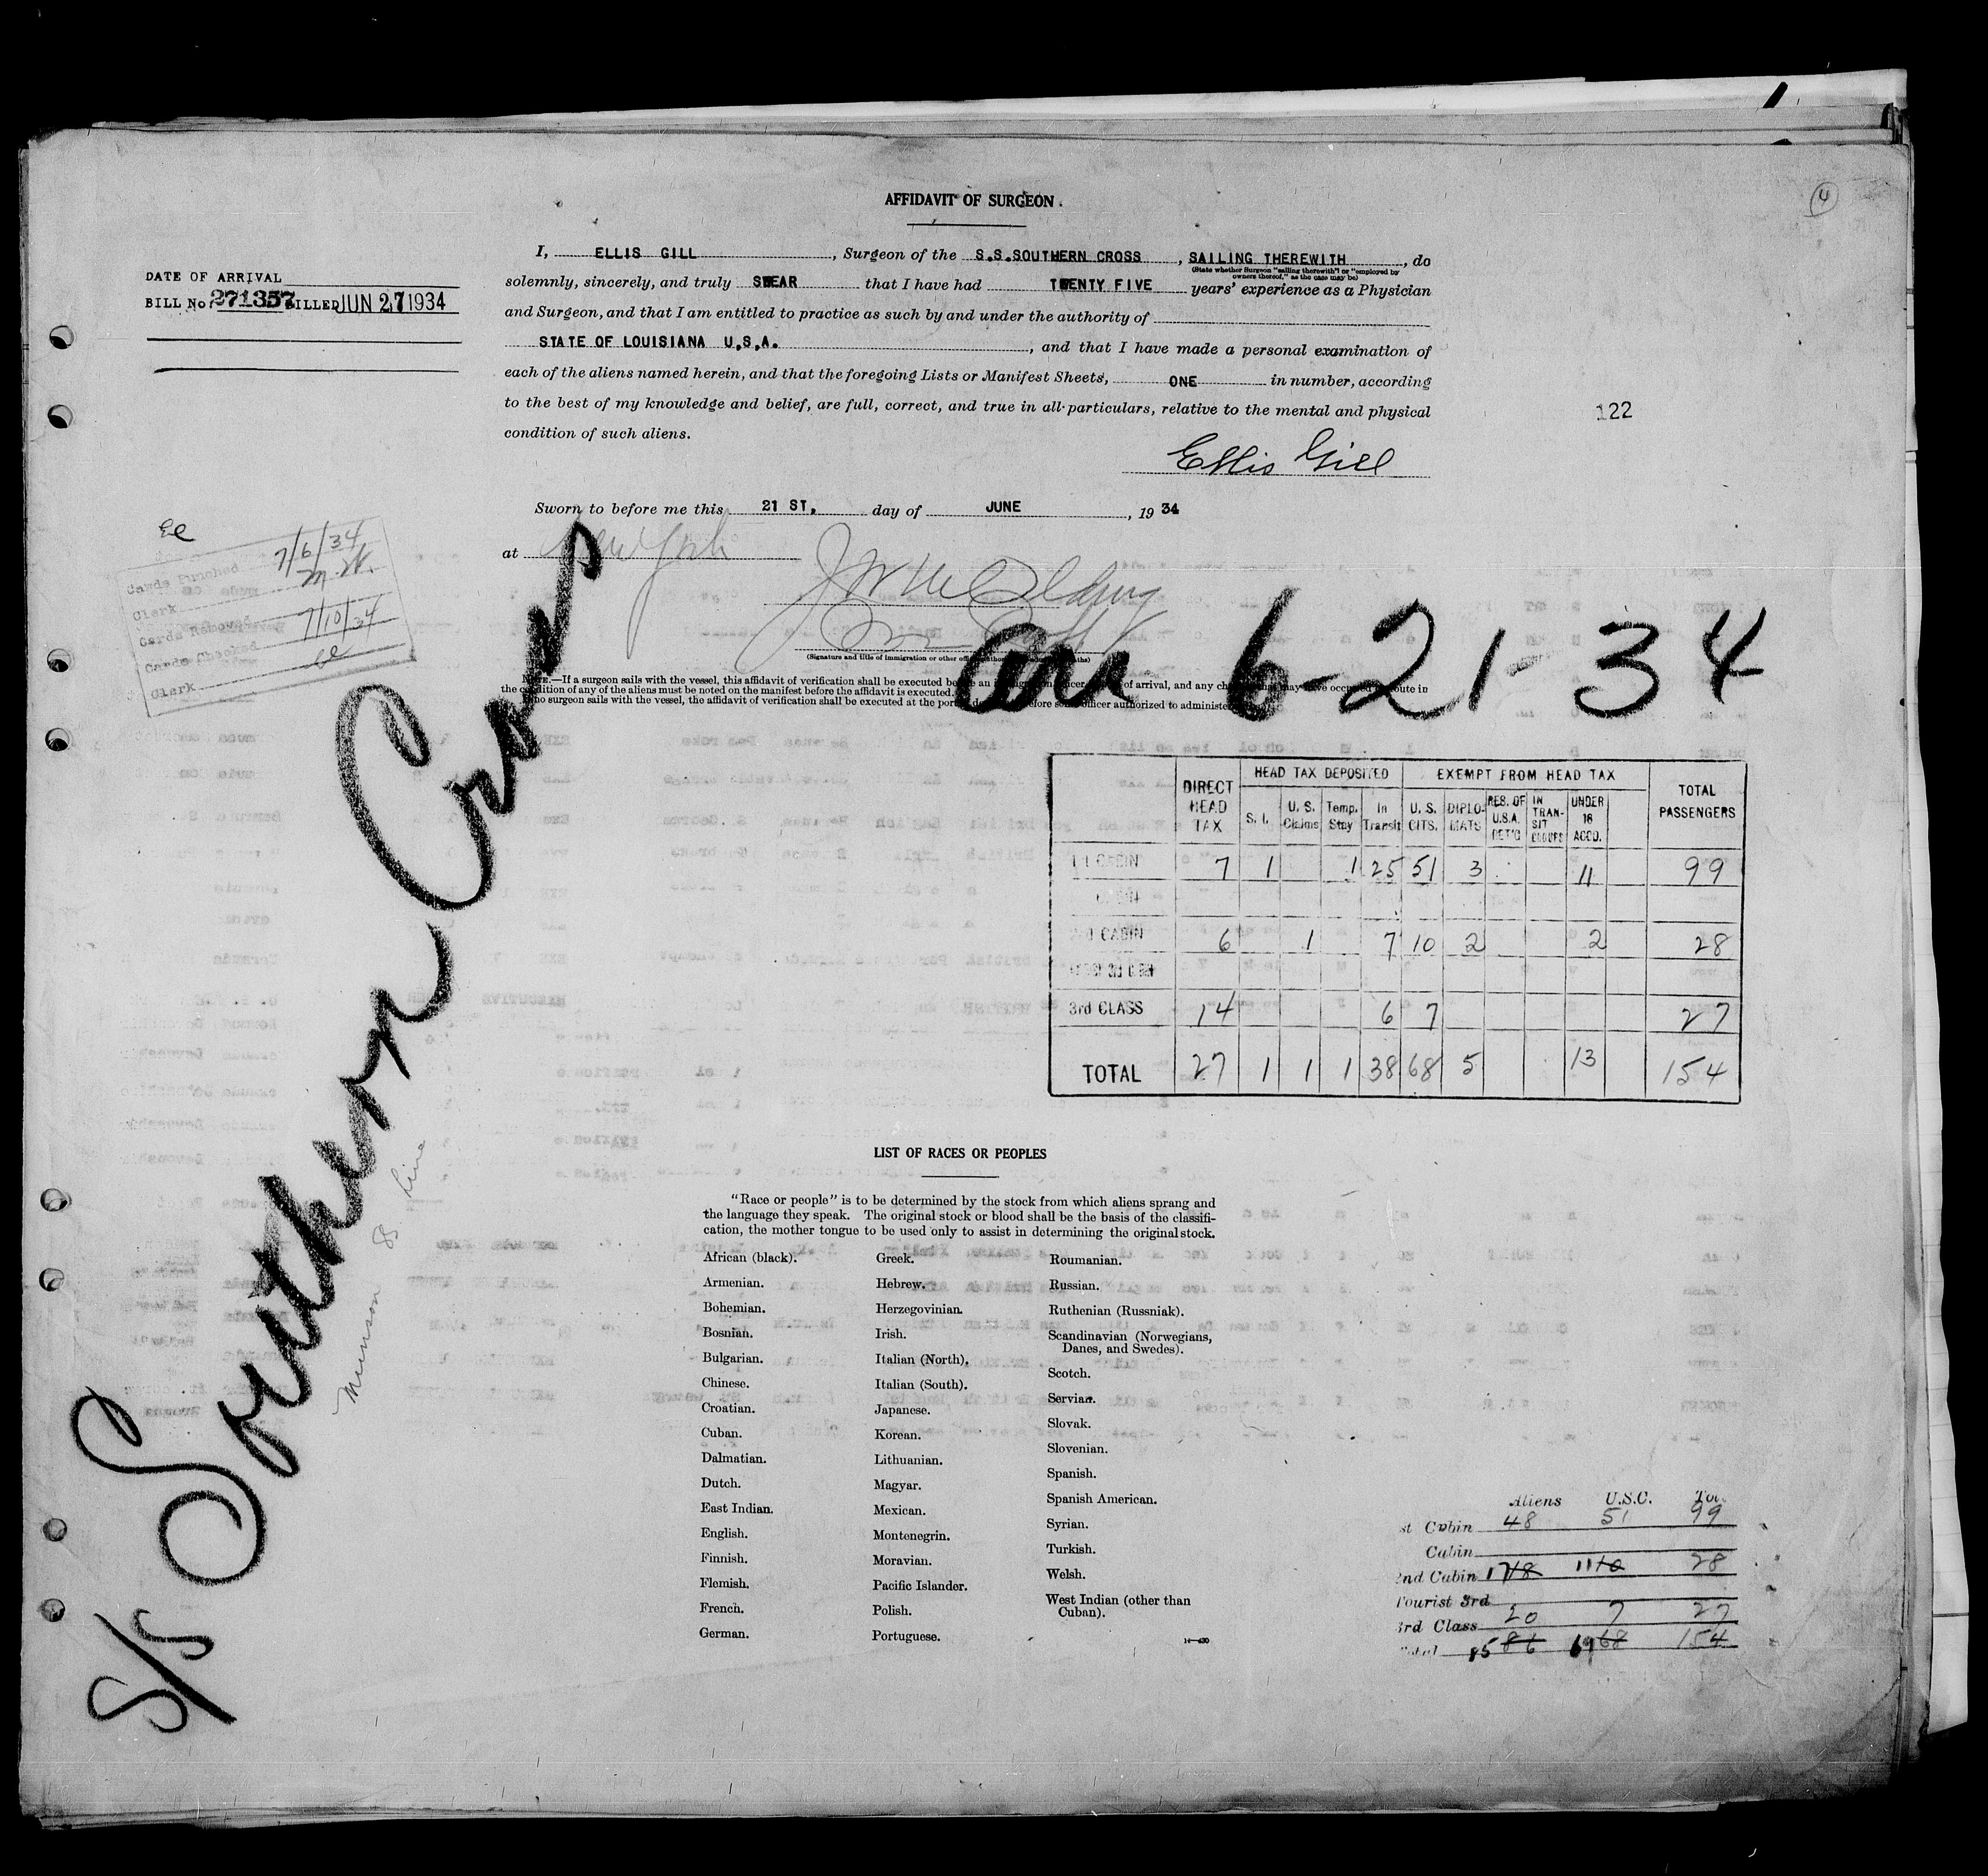 AFFIDAVIT OF SURGEON.
4
I, ELLIS GILL, Surgeon of the S.S.SOUTHERN CROSS, SAILING THEREWITH, do
(State whether Surgeon "sailing therewith" or "employed by owners thereof," as the case may be)
DATE OF ARRIVAL
BILL No. 271357 BILLED JUN 27 1934
solemnly, sincerely, and truly SWEAR that I have had TWENTY FIVE years' experience as a Physician
and Surgeon, and that I am entitled to practice as such by and under the authority of
STATE OF LOUISIANA U.S.A., and that I have made a personal examination of
each of the aliens named herein, and that the foregoing Lists or Manifest Sheets, ONE in number, according
to the best of my knowledge and belief, are full, correct, and true in all particulars, relative to the mental and physical
condition of such aliens.
122
Ellis Gill
Sworn to before me this 21 ST. day of JUNE, 19 34
at New York
Cards Punched 7/6/34
Clerk M.W.
Cards Removed
Cards Checked 7/10/34
Clerk
(Signature and title of immigration or other
arr 6-21-34
NOTE.—If a surgeon sails with the vessel, this affidavit of verification shall be executed of arrival, and any
the condition of any of the aliens must be noted on the manifest before the affidavit is executed.
no surgeon sails with the vessel, the affidavit of verification shall be executed at the port officer authorized to
S/S Southern Cross
Munson SS Line
DIRECT HEAD TAX HEAD TAX DEPOSITED EXEMPT FROM HEAD TAX TOTAL PASSENGERS
S. I. U. S. Claims Temp. Stay In Transit U. S. CITS. DIPLO-MATS RES. OF U.S.A. RET'G IN TRAN-SIT GROUPS UNDER 16 ACCD.
1st CABIN 7 1 1 25 51 3 11 99
CABIN
2nd CABIN 6 1 7 10 2 2 28
3rd CLASS 14 6 7 27
TOTAL 27 1 1 1 38 68 5 13 154
LIST OF RACES OR PEOPLES
"Race or people" is to be determined by the stock from which aliens sprang and
the language they speak. The original stock or blood shall be the basis of the classifi-
cation, the mother tongue to be used only to assist in determining the original stock.
African (black).
Armenian.
Bohemian.
Bosnian.
Bulgarian.
Chinese.
Croatian.
Cuban.
Dalmatian.
Dutch.
East Indian.
English.
Finnish.
Flemish.
French.
German.
Greek.
Hebrew.
Herzegovinian.
Irish.
Italian (North).
Italian (South).
Japanese.
Korean.
Lithuanian.
Magyar.
Mexican.
Montenegrin.
Moravian.
Pacific Islander.
Polish.
Portuguese.
Roumanian.
Russian.
Ruthenian (Russniak).
Scandinavian (Norwegians,
Danes, and Swedes).
Scotch.
Servian.
Slovak.
Slovenian.
Spanish.
Spanish American.
Syrian.
Turkish.
Welsh.
West Indian (other than
Cuban).
14—430
Aliens U.S.C. Tot.
st Cabin 48 51 99
Cabin
2nd Cabin 17 18 11 10 28
Tourist 3rd
3rd Class 20 7 27
Total 85 86 69 68 154